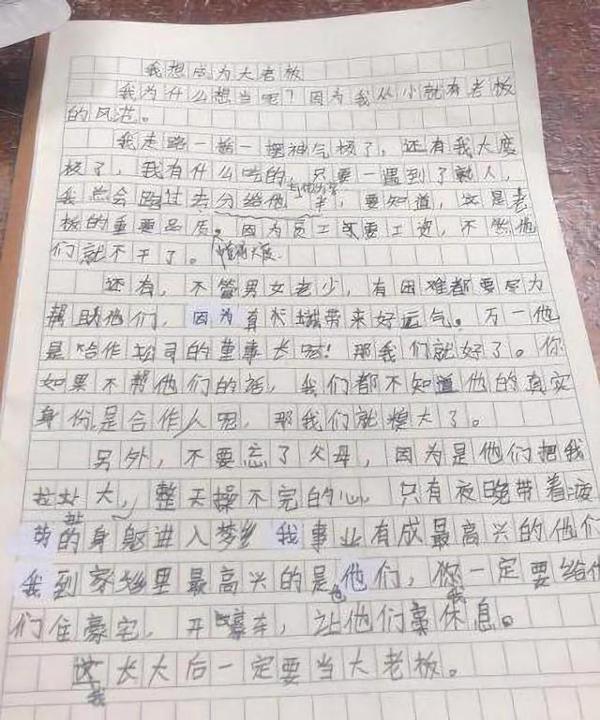 我想成为大老板
我为什么想当呢？因为我从小就有老板
的风范。
我走路一摇一摆神气极了，还有我大度
极了，我有什么吃的，只要一遇到了熟人，
我总会跑过去分给他半，要知道，这是老
板的重要品质。因为员工需要工资，不然他
们就不干了。
还有，不管男女老少，有困难都要尽力
帮助他们，因为真心能带来好运气。万一他
是合作公司的董事长呢！那我们就好了。你
如果不帮他们的话，我们都不知道他的真实
身份是合作人呢，那我们就糗大了。
另外，不要忘了父母，因为是他们把我
拉扯大，整天操不完的心，只有夜晚带着疲
劳的身躯进入梦乡 我事业有成最高兴的他们
我到家乡里最高兴的是他们，你一定要给他
也 我
们住豪宅，开豪车，让他们享休息。
这长大后一定要当大老板。
我